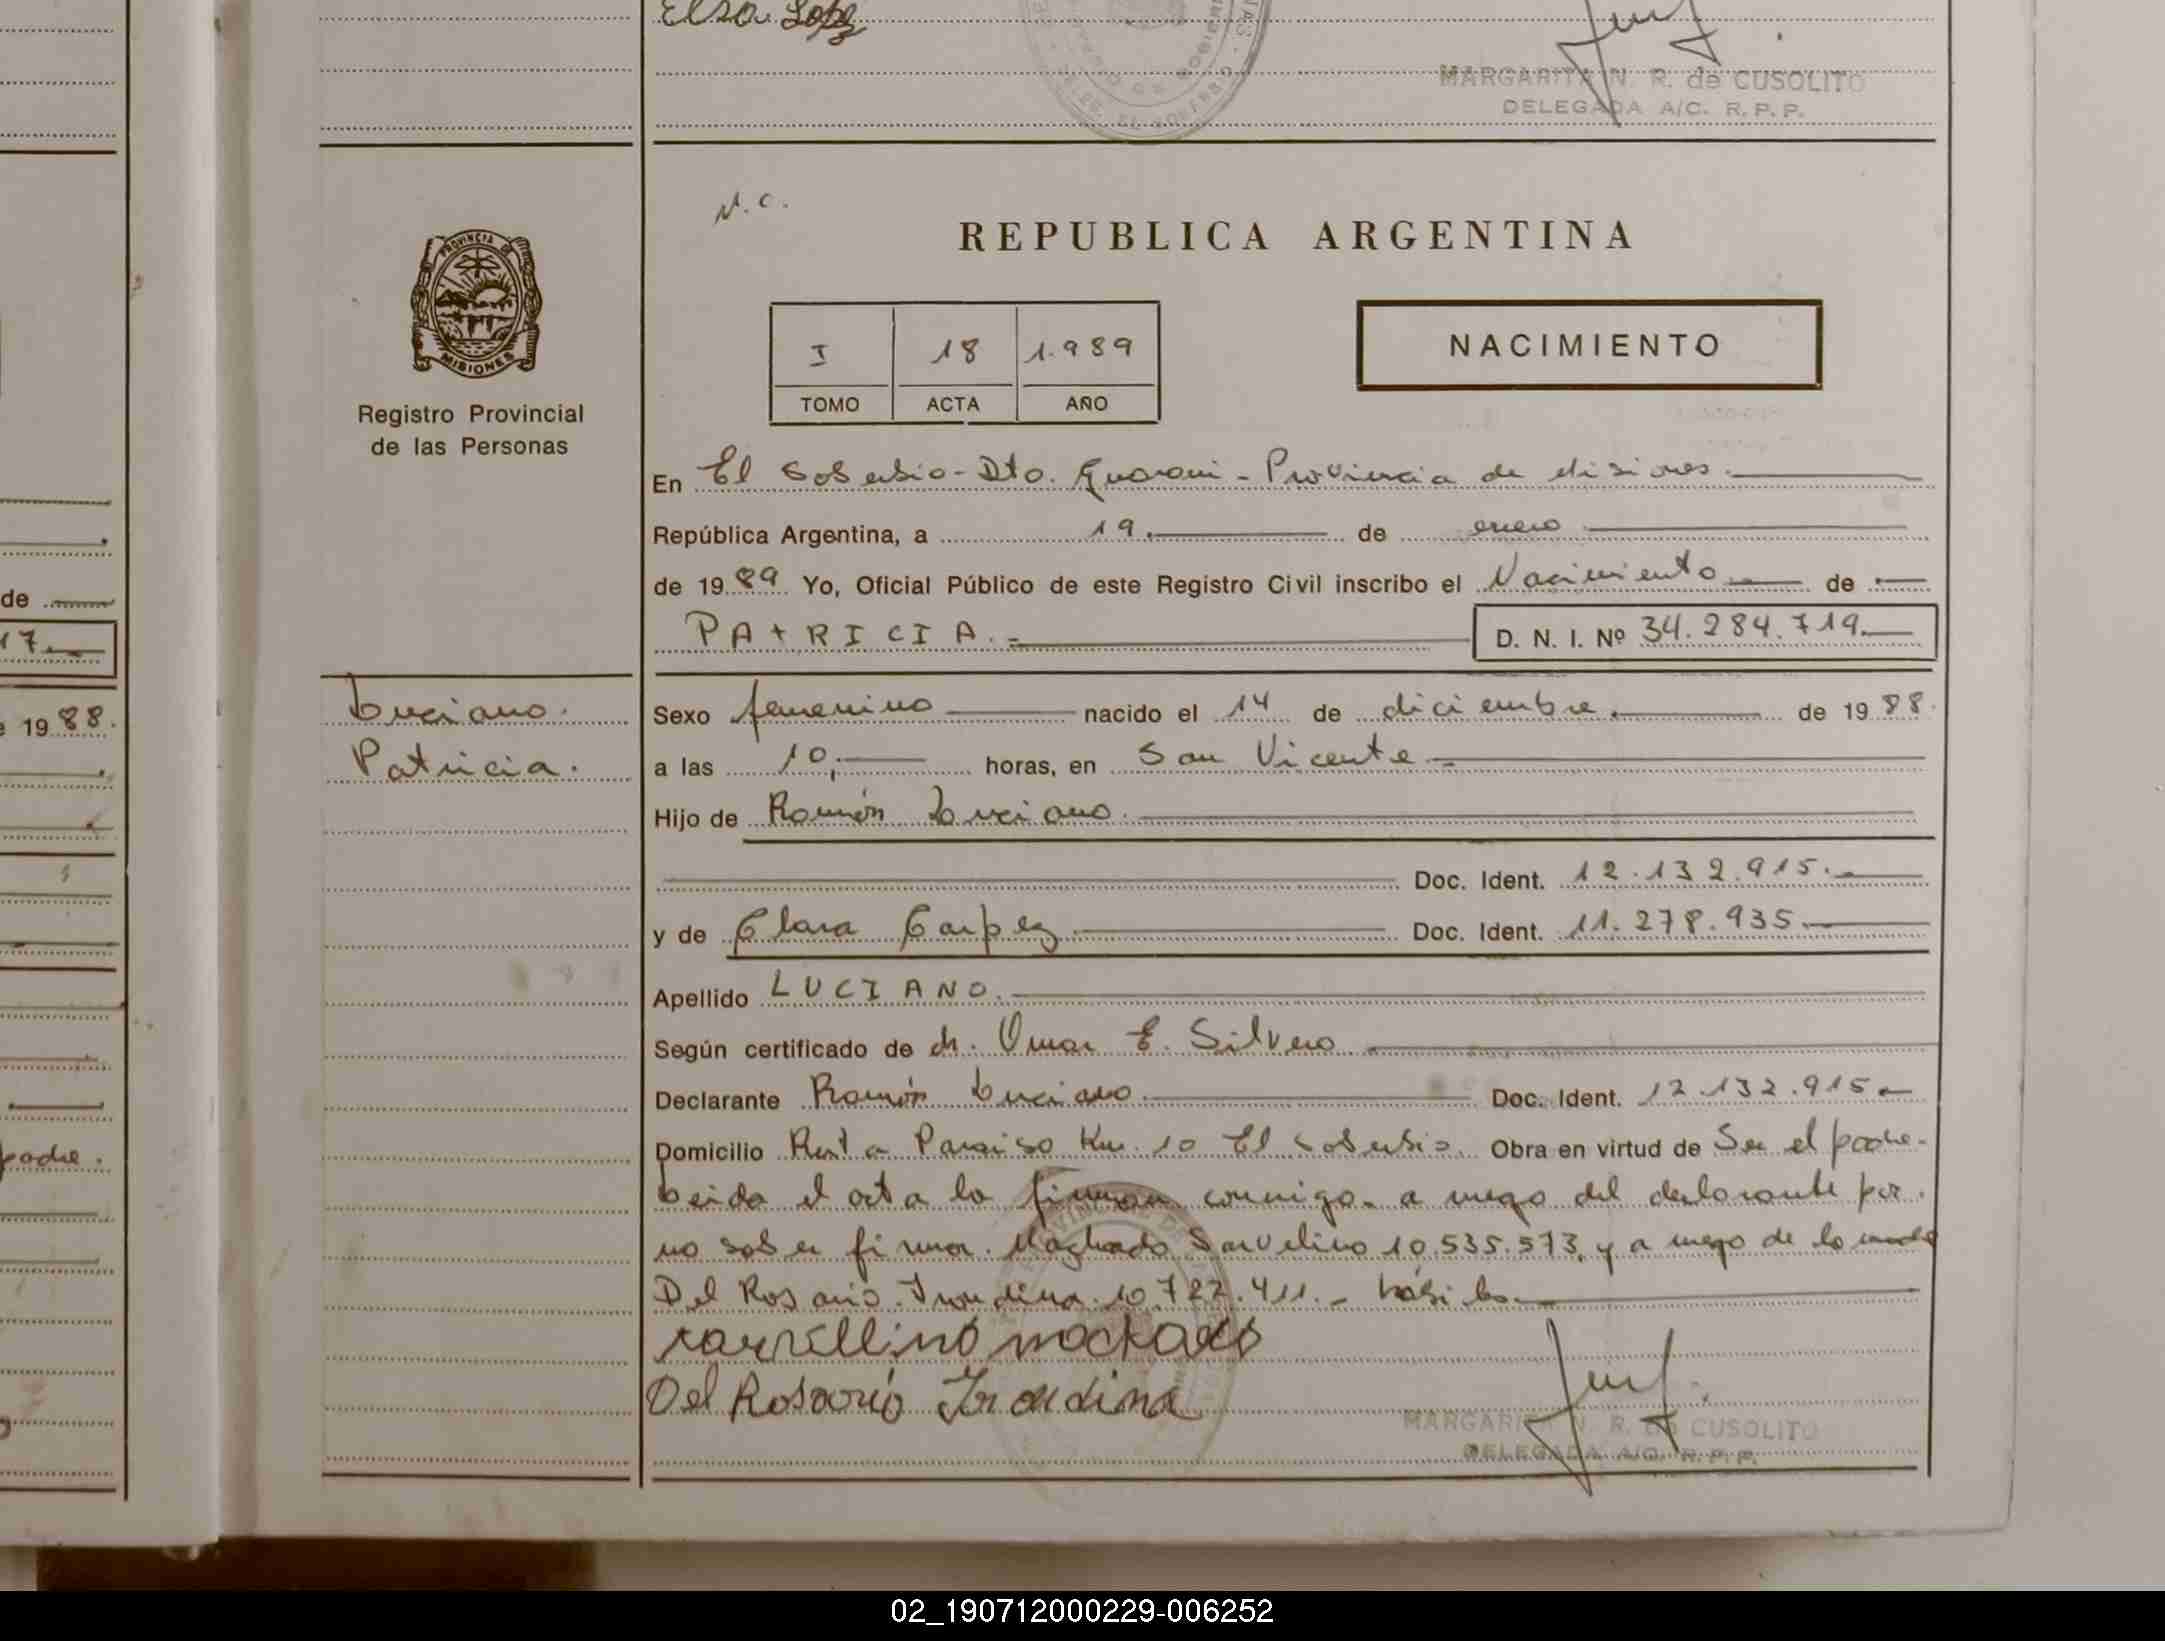 Elsa Lopez
MARGARITA N. R. de CUSOLITO
DELEGADA A/C. R. P. P.
N. C.
REPUBLICA ARGENTINA
PROVINCIA DE
MISIONES
Registro Provincial
de las Personas
I 18 1.989
TOMO ACTA AÑO
NACIMIENTO
En El Soberbio - Dto. Guarani - Provincia de Misiones.
República Argentina, a 19. de enero
de 1989 Yo, Oficial Público de este Registro Civil inscribo el Nacimiento de
PATRICIA.- D. N. I. Nº 34.284.719.
de
17.
e 1988.
padre.
Luciano.
Patricia.
Sexo femenino nacido el 14 de diciembre. de 1988.
a las 10, horas, en San Vicente
Hijo de Ramón Luciano.
Doc. Ident. 12.132.915.
y de Clara Carpez Doc. Ident. 11.278.935
Apellido LUCIANO.
Según certificado de dr. Omar E. Silvero
Declarante Ramón Luciano Doc. Ident. 12.132.915
Domicilio Ruta Paraiso Km. 10 El Soberbio. Obra en virtud de Ser el padre.
Leida el acta la firman conmigo. a ruego del declarante por
no saber firmar. Machado Sarvelino 10.535.573, y a ruego de la madre
Del Rosario. 10.722.411. - hábiles.
machado
Del Rosario
MARGARITA N. R. de CUSOLITO
DELEGADA A/C. R. P. P.
02_190712000229-006252